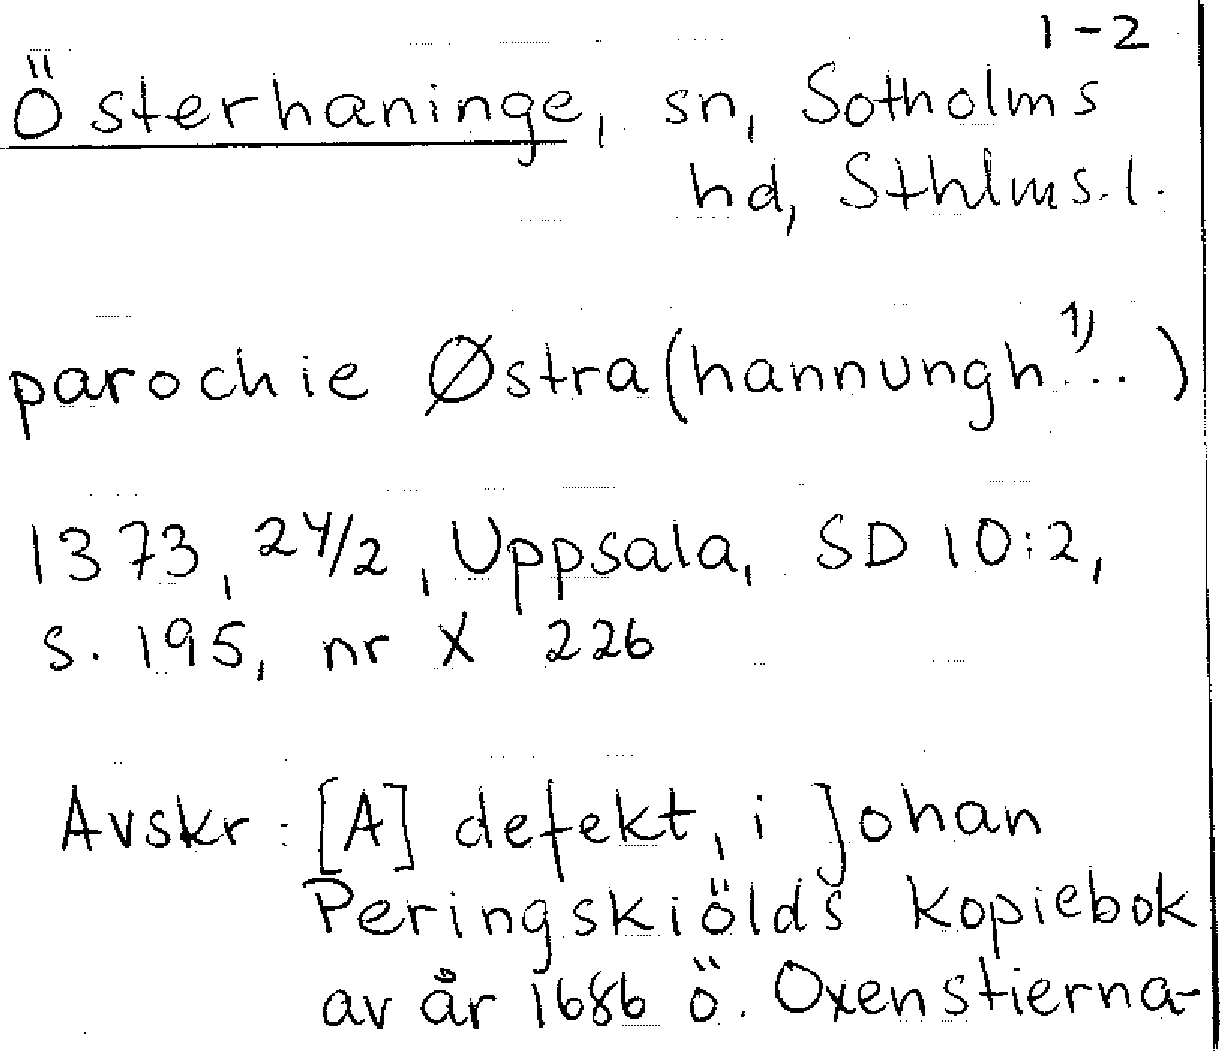 1-2
Österhaninge, sn, Sotholms
hd, Sthlms. l.
parochie Østra(hannungh¹⁾...)
1373, 24/2, Uppsala, SD 10:2,
s. 195, nr X 226
Avskr: [A] defekt, i Johan
Peringskiölds kopiebok
av år 1686 ö. Oxenstierna-